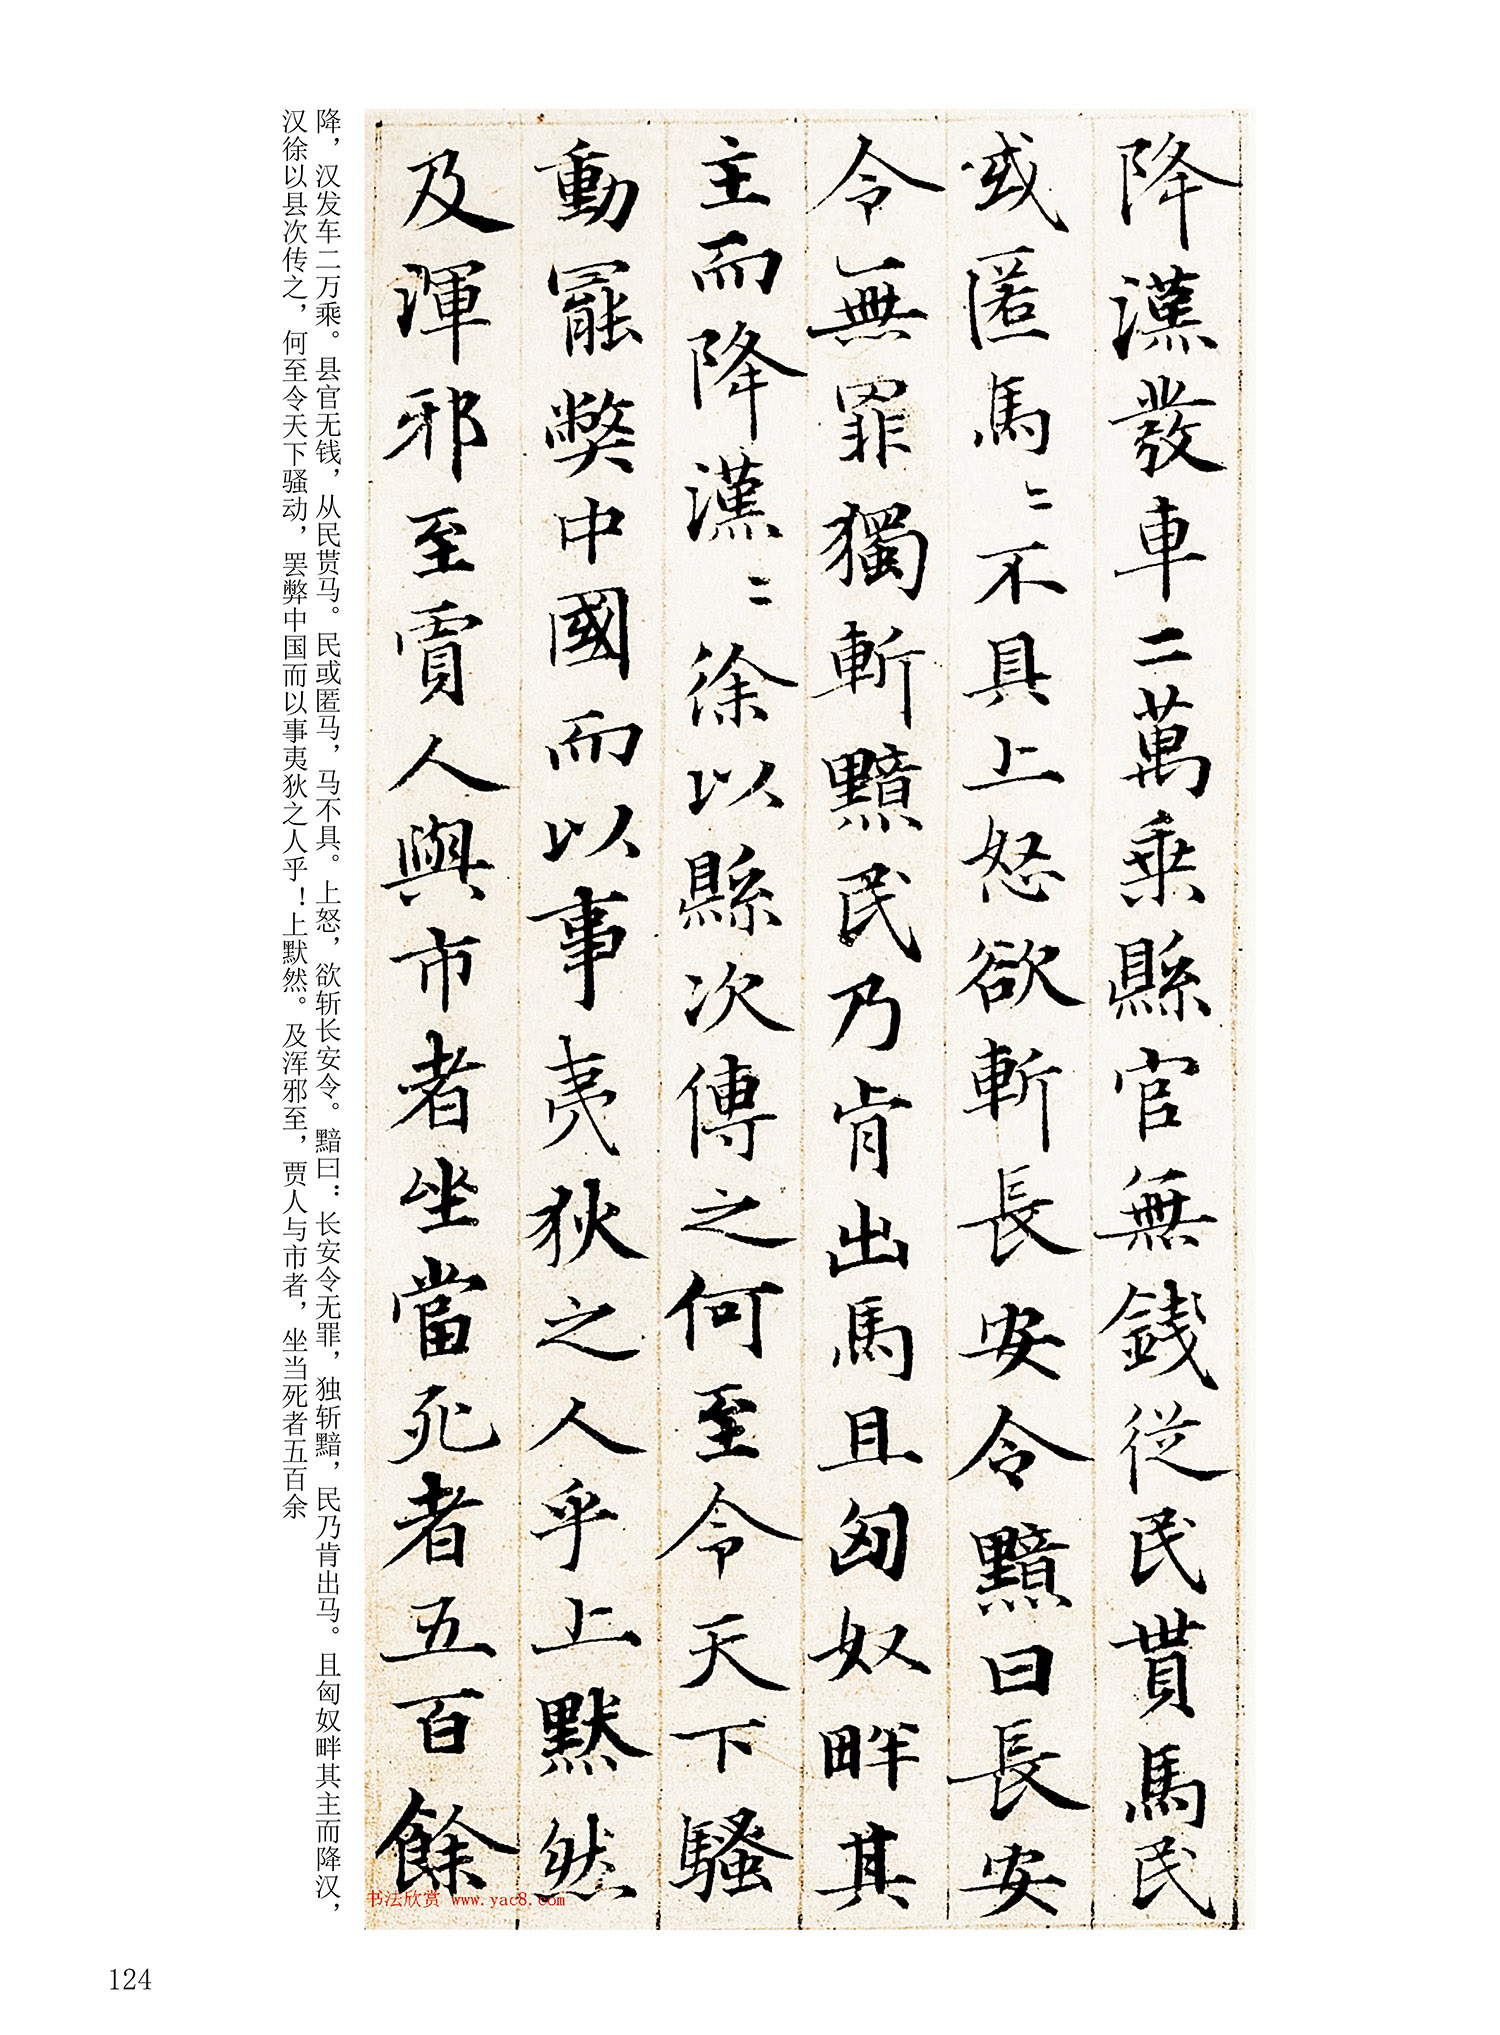 降漢發車二萬乘縣官無錢從民貰馬民
或匿馬〻不具上怒欲斬長安令黯曰長安
令無罪獨斬黯民乃肯出馬且匈奴畔其
主而降漢〻徐以縣次傳之何至令天下騷
動罷弊中國而以事夷狄之人乎上黙然
及渾邪至賈人與市者坐當死者五百餘
降，汉发车二万乘。县官无钱，从民贳马。民或匿马，马不具。上怒，欲斩长安令。黯曰：长安令无罪，独斩黯，民乃肯出马。且匈奴畔其主而降汉，
汉徐以县次传之，何至令天下骚动，罢弊中国而以事夷狄之人乎！上默然。及浑邪至，贾人与市者，坐当死者五百余
书法欣赏 www.yac8.com
124